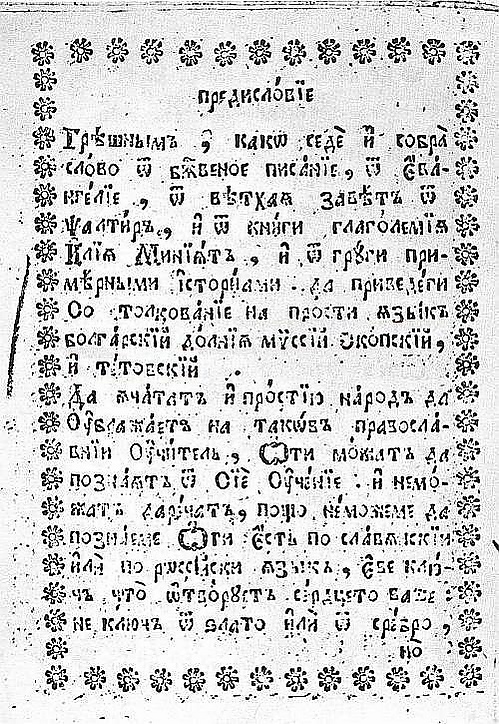 предислóвїе
Грѣшнымъ , какѡ седѐ и҆ собрà
слово ѿ бж҃веное писáнїе , ѿ Єѵа-
нгелїе , ѿ вѣтхаѧ завѣтъ ѿ
Ѱалтирь , и҆ ѿ книги глаголемїѧ
Илїѧ Минїѧтъ , и҆ ѿ грꙋги при-
мѣрными їсторїами . да приведеги
Со толкованїе на прости ѧзыкъ
болгáрскїй долнїѧ мѵссїй Скопскїй ,
и҆ тетовскїй .
Да ѧчáтатъ и҆ прóстїю нáродъ да
Оублажáетъ на такѡвъ правослá-
внїи Оучи́тель , Ѿти мóжатъ да
познáѧтъ ѿ Сїѐ Оучéнїе . и҆ немó-
жатъ да речатъ , пошо немóжеме да
познáеме Ѿти Єсть по слáвѧнскїй
и҆лѝ по рꙋссїйски ѧзыкъ , Єве клю-
чъ что ѿтворꙋетъ сердцето ваше :
не ключъ ѿ злато и҆лѝ ѿ сребро ,
но